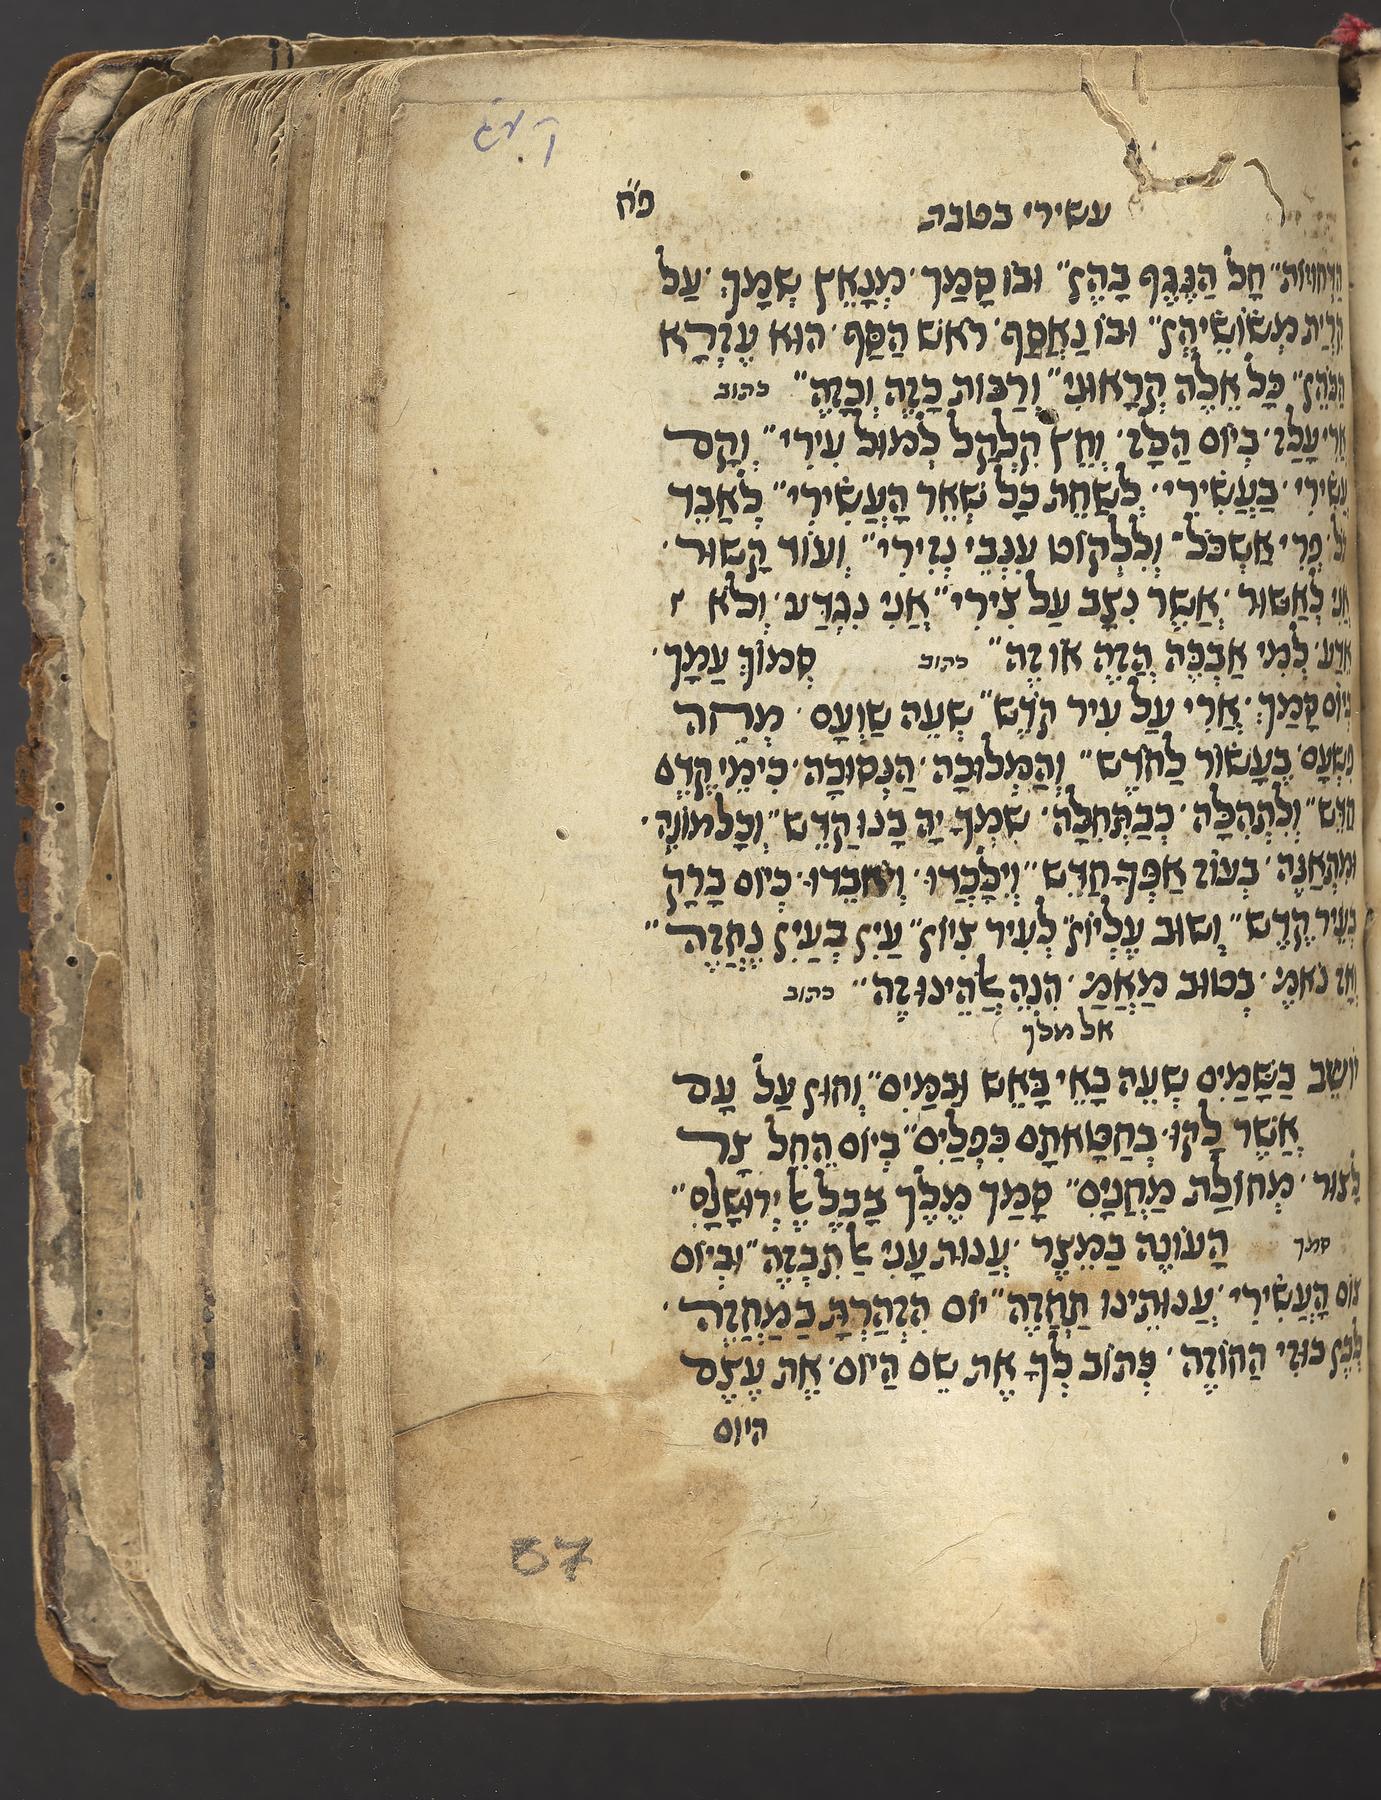 קעג
עשירי בטבת פ״ח
חָל הַנֶּגֶף בָּהֶן״ וּבוֹ קָמַךְ מְנָאֵץ שְׁמָךְ עַל
קִרְיַת מְשׂוֹשֵׂיהֶן״ וּבוֹ נֶאֱסַף רֹאשׁ הַסַּף הוּא עֶזְרָא
הַכֹּהֵן״ כָּל אֵלֶּה קְרָאוּנִי״ וְרַבּוֹת כָּזֶה וְכָזֶה״ כתוב
אֲרִי עָלַז בְּיוֹם הַלָּז וְחֵץ קִלְקַל לְמוּל עִירִי״ וְקָם
עֲשִׂירִי בַּעֲשִׂירִי לְשַׁחֵת כָּל שְׁאֵר הָעֲשִׂירִי״ לְאַבֵּד
כל פְּרִי אֶשְׁכֹּל וְלִלְקוֹט עִנְּבֵי נְזִירִי״ וְעוֹד קָשׁוּר
אֲנִי לְאַשּׁוּר אֲשֶׁר נִצָּב עַל צִירִי״ אֲנִי נִגְדַּע וְלֹא
אֵדַע לְמִי אֶבְכֶּה הֲזֶה אוֹ זֶה״ כתוב סְמוֹךְ עַמָּךְ
בְּיוֹם קָמַךְ אֲרִי עַל עִיר קֹדֶשׁ״ שְׁעֵה שַׁוְעָם מְחֵה
פִשְׁעָם בֶּעָשׂוֹר לַחֹדֶשׁ״ וְהַמְּלוּכָה הַנְּסוּכָה כִּימֵי קֶדֶם
חַדֵּשׁ״ וְלִתְהִלָּה כְּבַתְּחִלָּה שִׁמְךָ יָהּ בָּנוּ קַדֵּשׁ״
בְּעוֹז אַפְּךָ חַדֵּשׁ״ וְיִלָּכְדוּ וְיֹאבֵדוּ כְּיוֹם בָּרָק
בְּעִיר קֶדֶשׁ״ וְשׁוּב עֶלְיוֹן לְעִיר צִיּוֹן״ עַיִן בְּעַיִן נֶחֱזֶה״
וְאָז נֹאמַר בְּטוּב מַאֲמַר הִנֵּה אֱלֹהֵינוּ זֶה״ כתוב
אל מלך
יוֹשֵׁב בַּשָּׁמַיִם שְׁעֵה בָּאֵי בָּאֵשׁ וּבַמַּיִם״ וְחוּן עַל עַם
אֲשֶׁר לָקוּ בְּחַטָּאתָם כִּפְלַיִם״ בְּיוֹם הֵחֵל צַר
לָצוּר מְחוֹלַת מַחֲנָיִם״ סָמַךְ מֶלֶךְ בָּבֶל אֶל יְרוּשָׁלַיִם״
סמך הָעוֹנֶה בַּמֵּצֶר עֲנוּת עָנִי אַל תִּבְזֶה״ וּבְיוֹם
צוֹם הָעֲשִׂירִי עֲנוּתֵינוּ תַּחֲזֶה״ יוֹם הִזְהַרְתָּ בַּמַּחֲזֶה
לְבֶן בּוּזִי הַחוֹזֶה כְּתוֹב לְךָ אֶת שֵׁם הַיּוֹם אֶת עֶצֶם
היום
37